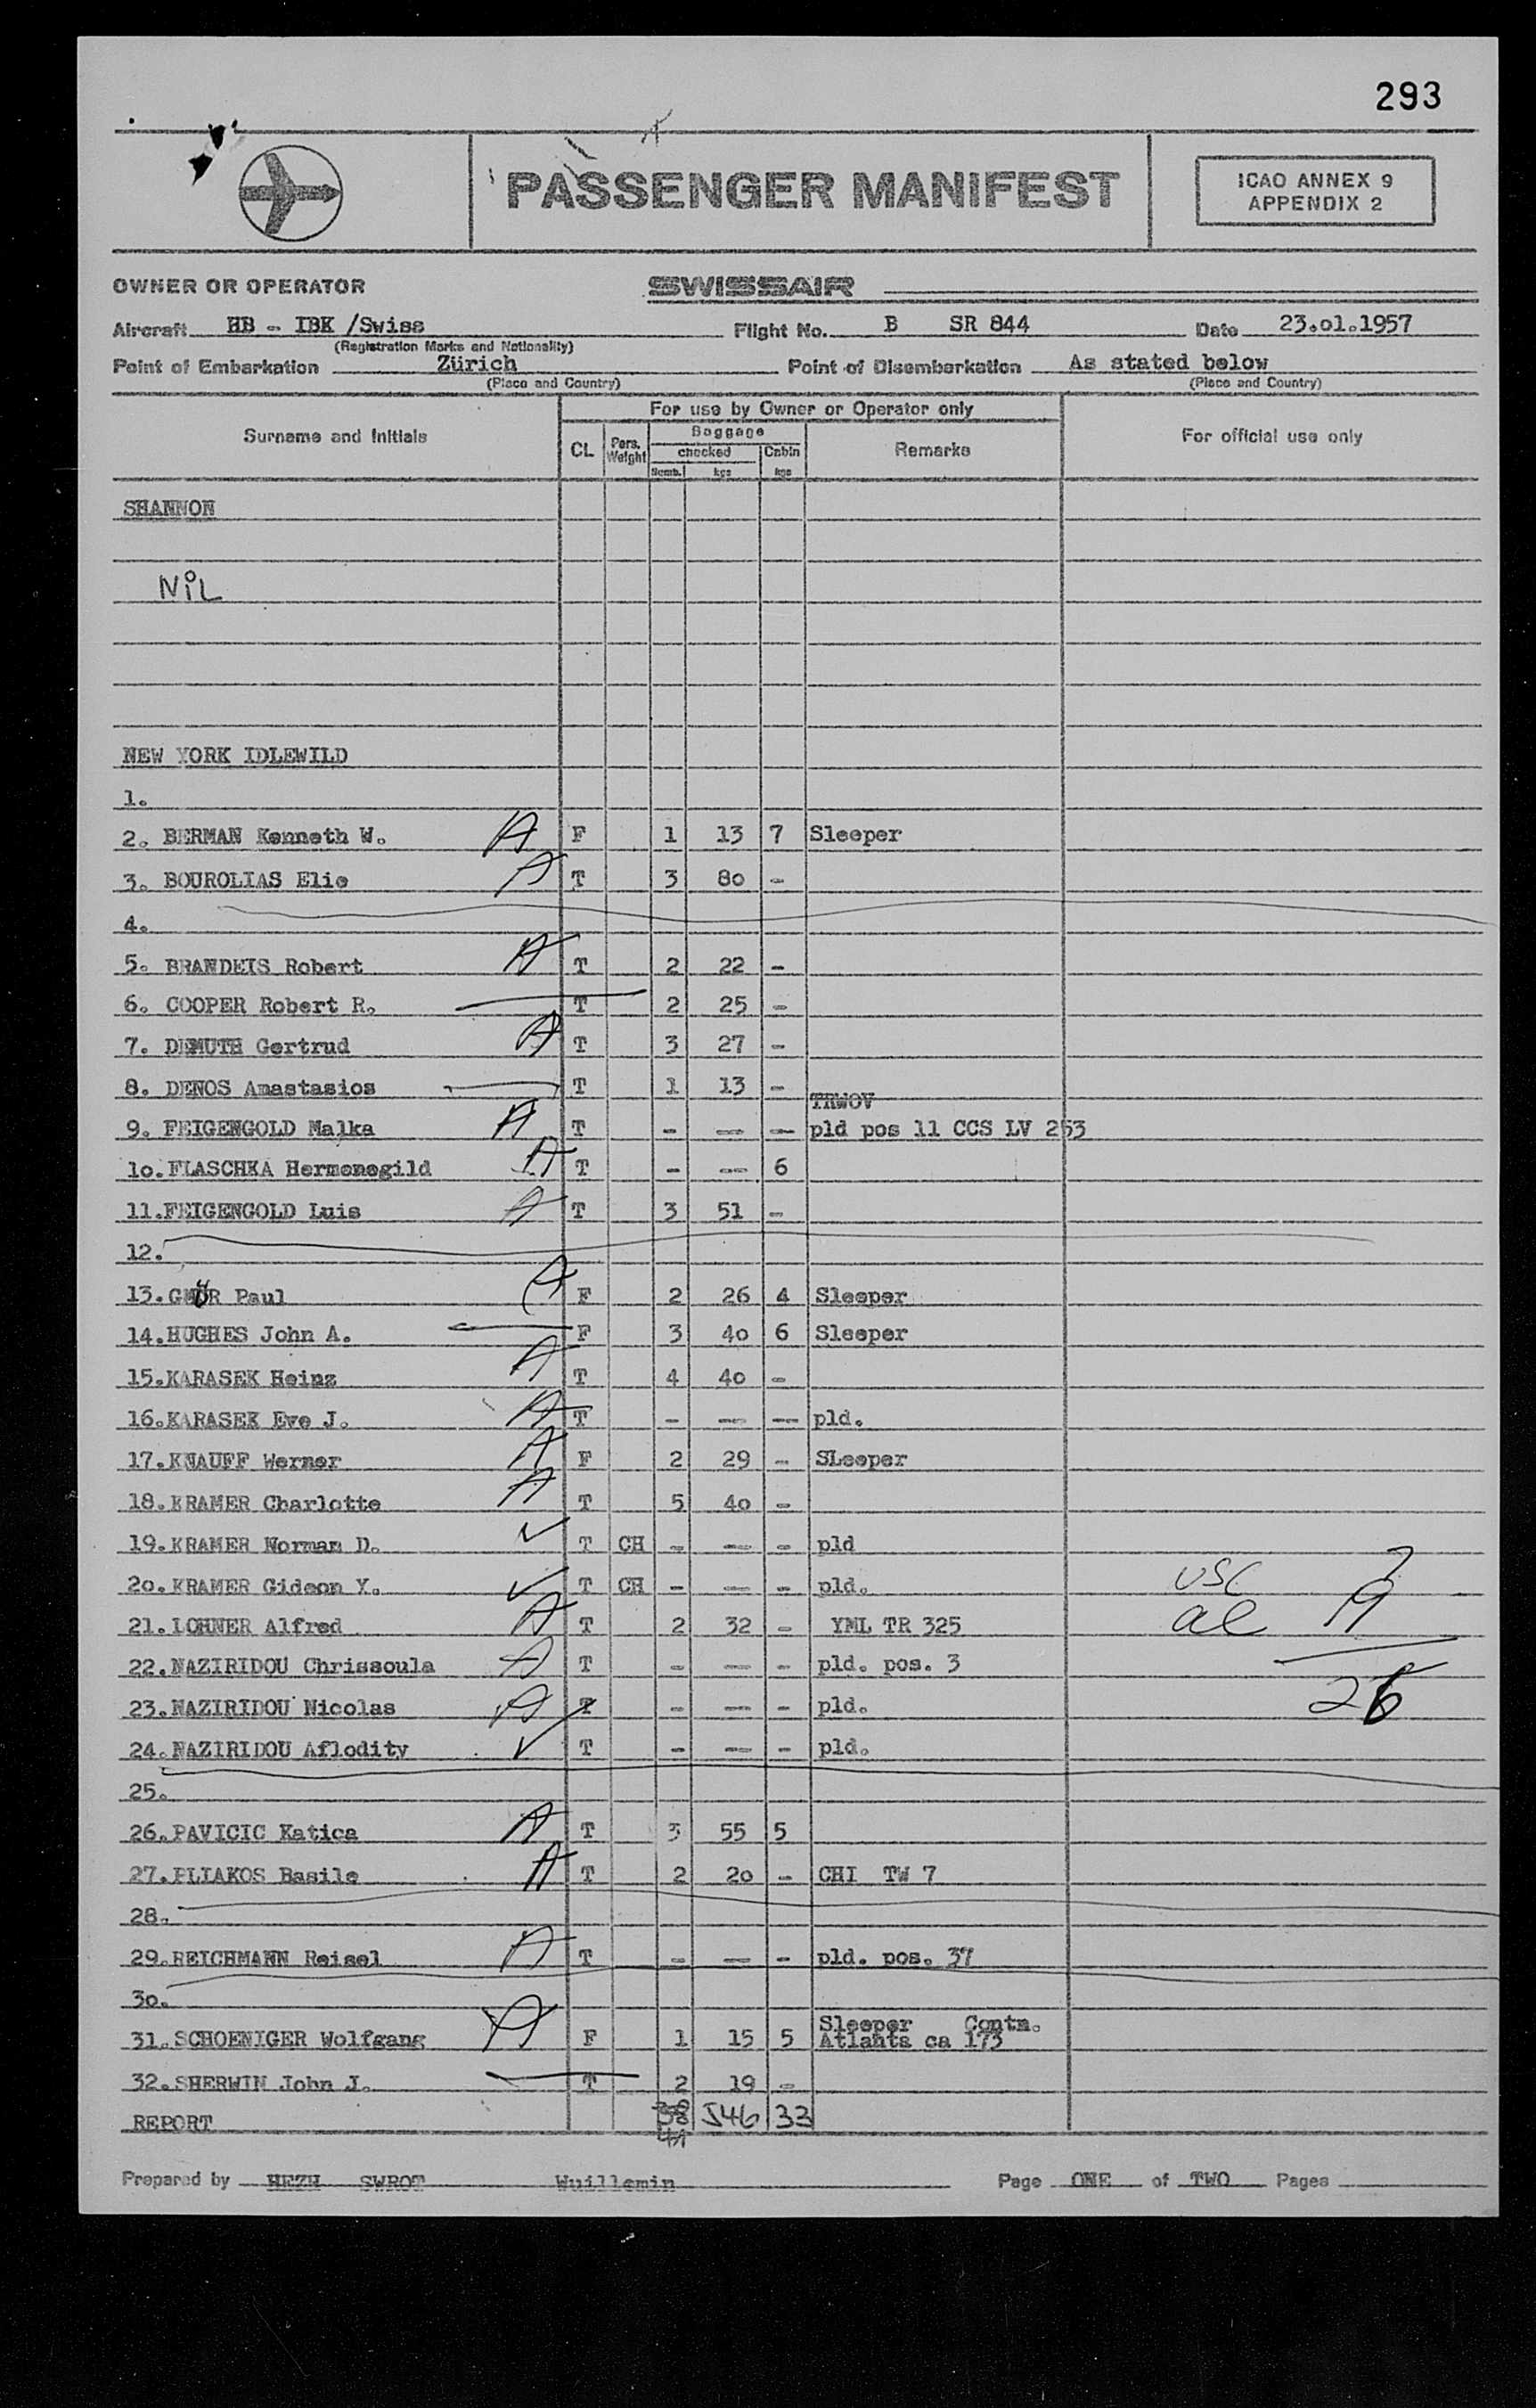 293
PASSENGER MANIFEST
ICAO ANNEX 9
APPENDIX 2
OWNER OR OPERATOR SWISSAIR
Aircraft HB - IBK /Swiss Flight No. B SR 844 Date 23.o1.1957
(Registration Marks and Nationality)
Point of Embarkation Zürich Point of Disembarkation As stated below
(Place and Country) (Place and Country)
For use by Owner or Operator only
Surname and Initials CL Pers. Weight Baggage checked Cabin Remarks For official use only
Numb. kgs kgs
SHANNON
NiL
NEW YORK IDLEWILD
1.
2. BERMAN Kenneth W. A F 1 13 7 Sleeper
3. BOUROLIAS Elie A T 3 8o -
4.
5. BRANDEIS Robert A T 2 22 -
6. COOPER Robert R. T 2 25 -
7. DEMUTH Gertrud A T 3 27 -
8. DENOS Anastasios T 1 13 -
TRWOV
9. FEIGENGOLD Malka A T - -- -- pld pos 11 CCS LV 253
1o. FLASCHKA Hermenegild A T - -- 6
11. FEIGENGOLD Luis A T 3 51 -
12.
13. GMÜR Paul A F 2 26 4 Sleeper
14. HUGHES John A. F 3 4o 6 Sleeper
15. KARASEK Heinz A T 4 4o -
16. KARASEK Eve J. A T - -- -- pld.
17. KNAUFF Werner A F 2 29 - SLeeper
18. KRAMER Charlotte A T 5 4o -
19. KRAMER Norman D. ✓ T CH - -- - pld
2o. KRAMER Gideon Y. ✓ T CH - -- - pld. USC 7
21. LOHNER Alfred A T 2 32 - YML TR 325 al 19
22. NAZIRIDOU Chrissoula A T - -- - pld. pos. 3
23. NAZIRIDOU Nicolas A T - -- - pld. 26
24. NAZIRIDOU Aflodity ✓ T - -- - pld.
25.
26. PAVICIC Katica A T 3 55 5
27. PLIAKOS Basile A T 2 2o - CHI TW 7
28.
29. REICHMANN Reisel A T - -- - pld. pos. 37
30.
31. SCHOENIGER Wolfgang A F 1 15 5 Sleeper Contn.
Atlanta ca 173
32. SHERWIN John J. T 2 19 -
REPORT 38 546 33
41
Prepared by HEZH SWROT Wuillemin Page ONE of TWO Pages